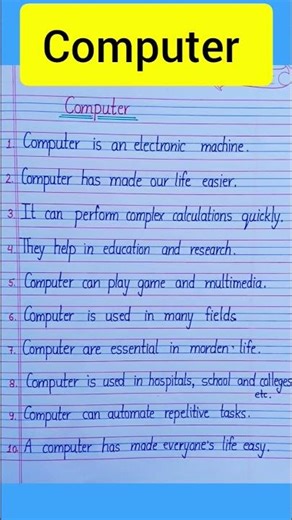 Computer
Computer
1. Computer is an electronic machine.
2. Computer has made our life easier.
3. It can perform complex calculations quickly.
4. They help in education and research.
5. Computer can play game and multimedia.
6. Computer is used in many fields
7. Computer are essential in morden life.
8. Computer is used in hospitals, school and colleges
etc.
9. Computer can automate repelitive tasks.
10. A computer has made everyone's life easy.